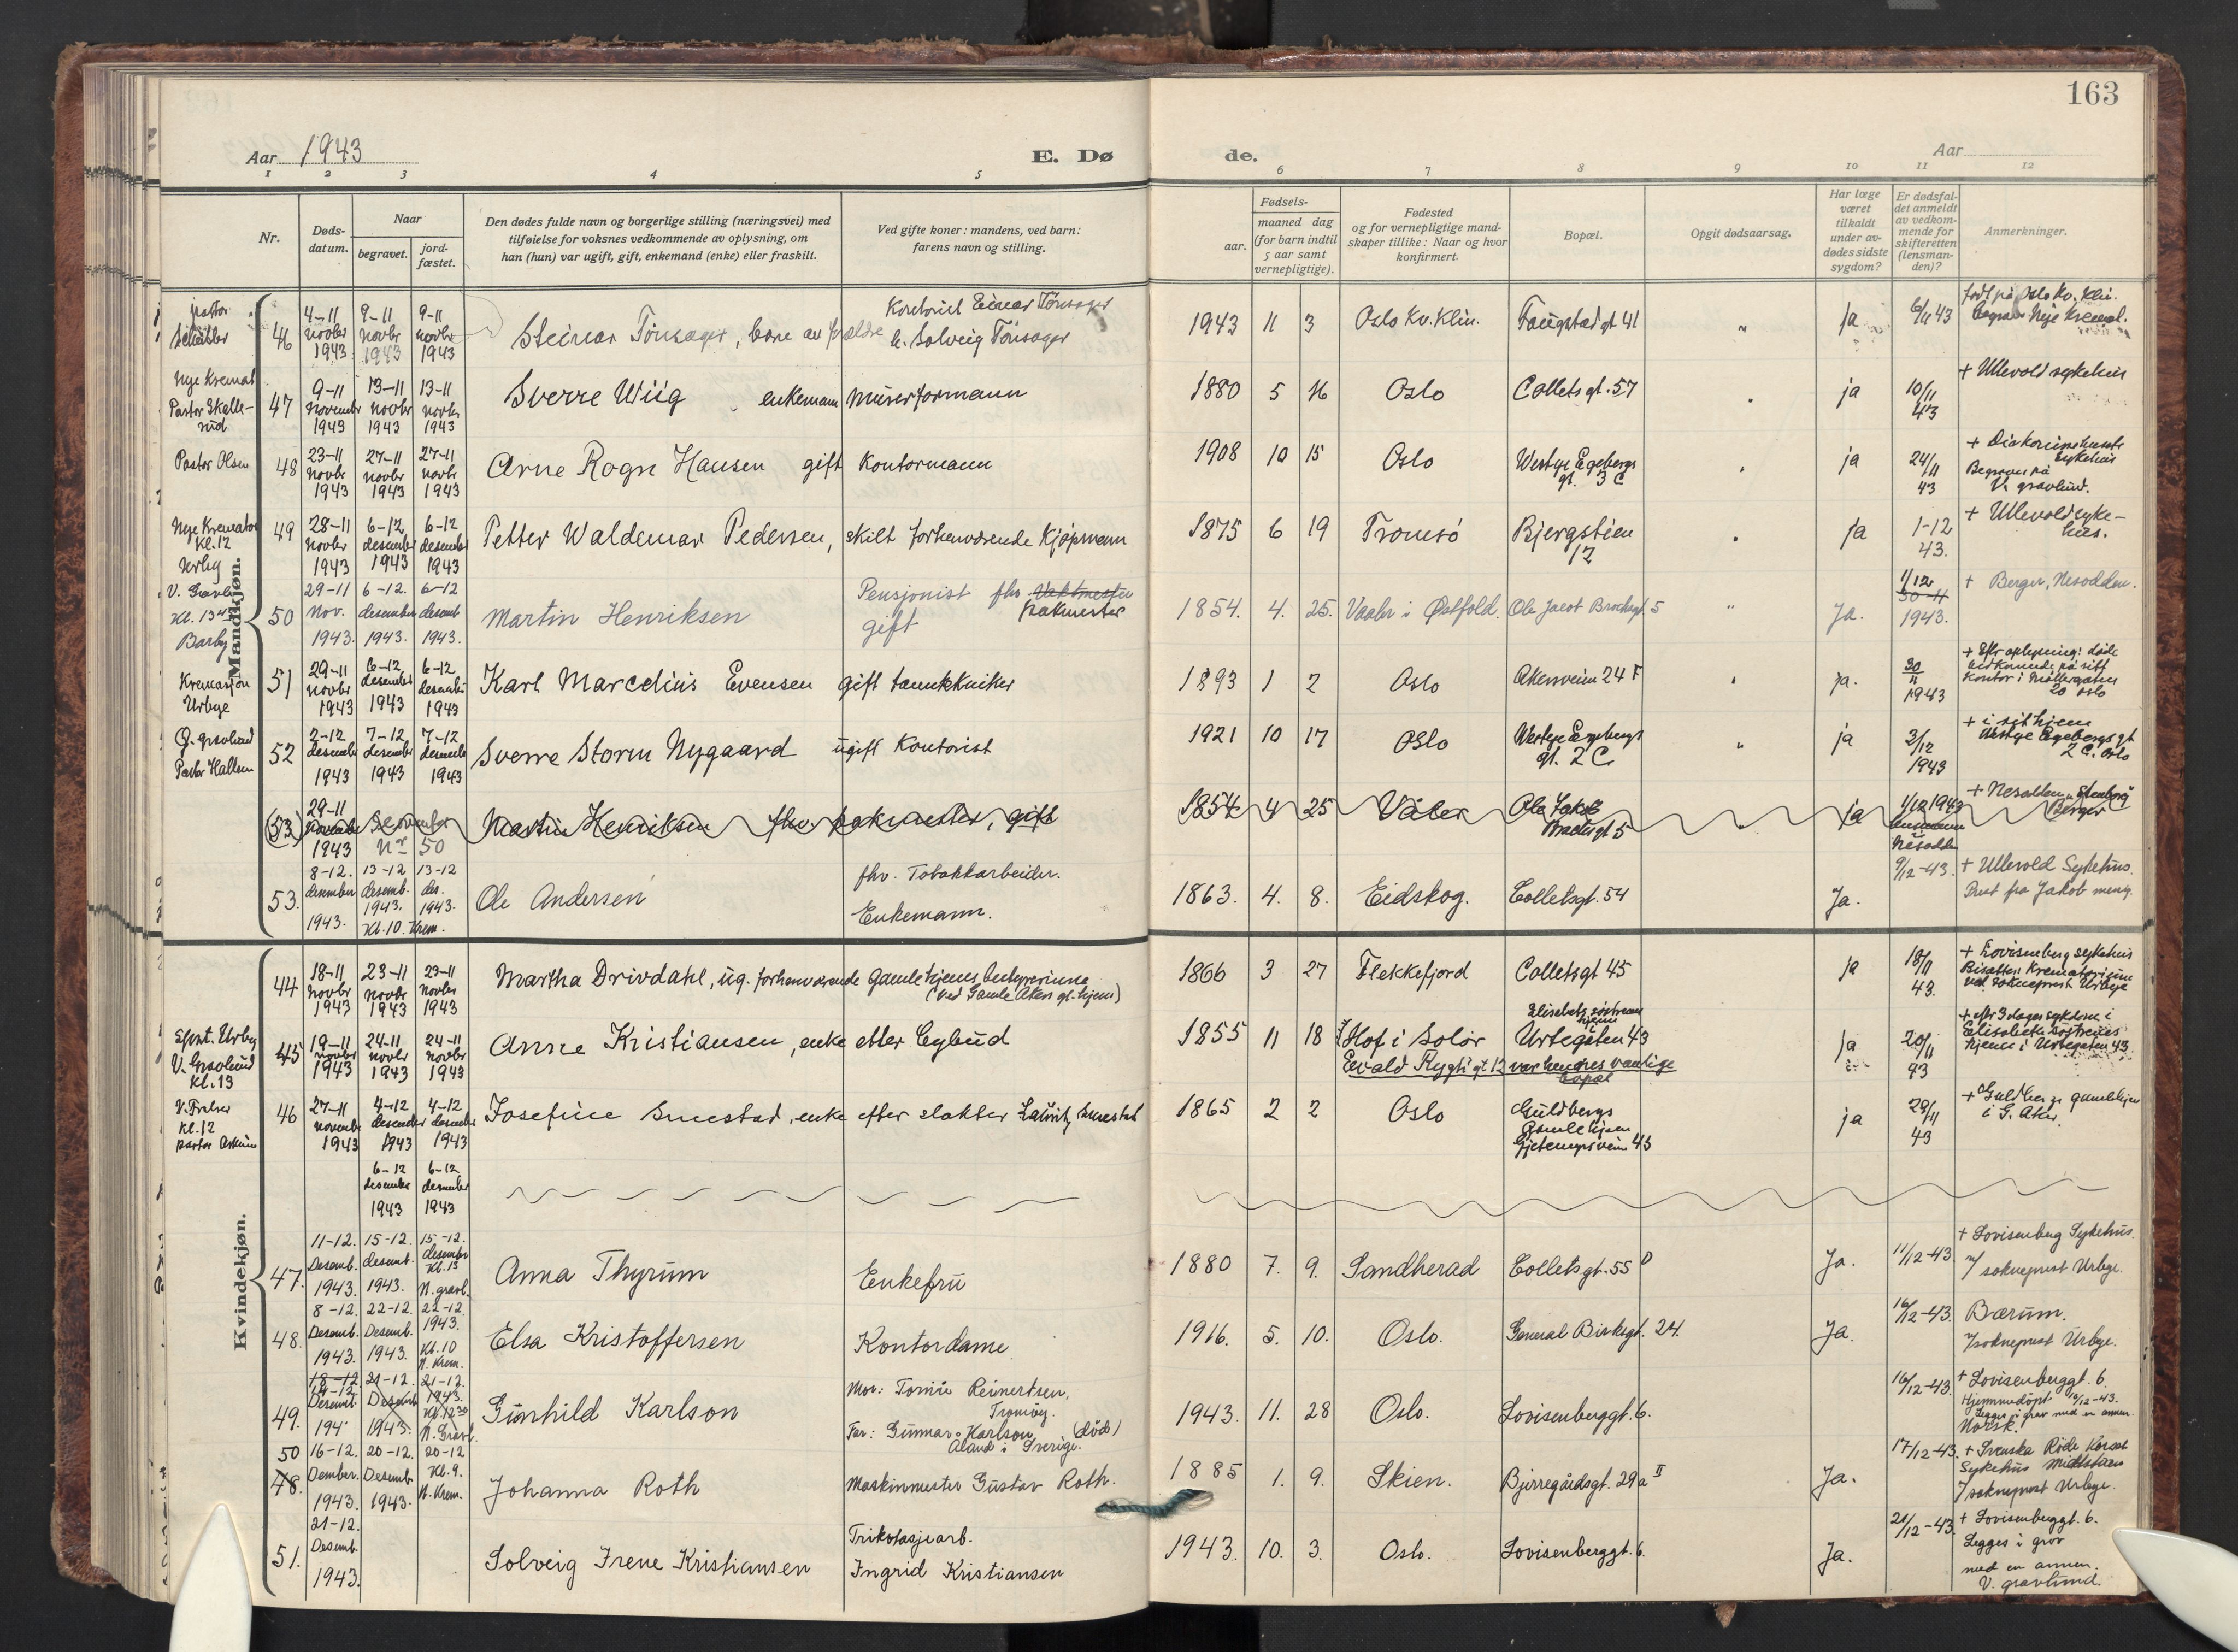 163
Aar 1943
E. Dø
de.
Aar
1 2 3 4 5 6 7 8 9 10 11 12
Nr.
Døds-
datum.
Naar
begravet.
jord-
fæstet.
Den dødes fulde navn og borgerlige stilling (næringsvei) med
tilføielse for voksnes vedkommende av oplysning, om
han (hun) var ugift, gift, enkemand (enke) eller fraskilt.
Ved gifte koner: mandens, ved barn:
farens navn og stilling.
Fødsels-
aar.
maaned dag
(for barn indtil
5 aar samt
vernepligtige).
Fødested
og for vernepligtige mand-
skaper tillike: Naar og hvor
konfirmert.
Bopæl.
Opgit dødsaarsag.
Har læge
været
tilkaldt
under av-
dødes sidste
sygdom?
Er dødsfal-
det anmeldt
av vedkom-
mende for
skifteretten
(lensman-
den)?
Anmerkninger.
Mandkjøn.
46
4-11 9-11 9-11
novbr novbr novbr
1943 1943 1943
Steinar Tönsager, barn av
Kontorist Einar Tönsager
h. Solveig Tönsager
1943 11 3 Oslo Kv. Klin. Faugstad gt 41 " ja 6/11 43
født på Oslo Kv. Klin.
Nye Kremat.
Nye Kremat
Pastor Skalle-
rud
47
9-11 13-11 13-11
november novbr novbr
1943 1943 1943
Sverre Wiig enkemann murerformann
1880 5 16 Oslo Collets gt. 57 " ja 10/11 43
+ Ullevold sykehus
Pastor Olsen
48
23-11 27-11 27-11
novbr novbr novbr
1943 1943 1943
Arne Rogn Hansen gift kontormann
1908 10 15 Oslo Westye Egebergs
gt. 3 C
" ja 24/11 43
+ Diakonissehusets
sykehus
Begraves på
V. gravlund.
Nye Kremator
Kl. 12
Urby
49
28-11 6-12 6-12
novbr desember desember
1943 1943 1943
Petter Waldemar Pedersen, skilt forhenværende Kjøpmann
1875 6 19 Tromsö Bjergstien
12
" ja 1-12
43.
+ Ullevold syke-
hus.
V. Gravl.
Kl. 13
Barby
50
29-11 6-12. 6-12
Nov. desember desemb
1943. 1943. 1943.
Martin Henriksen
Pensjonist fhv. Vaktmester
pakmester
gift
1854. 4. 25. Vaaler i Østfold. Ole Jacob Brochsgt 5 " Ja. 1/12
30-11
1943.
+ Berger, Nesodden.
Kremasjon
Urbye
51
29-11 6-12 6-12
novbr desember desember
1943 1943 1943
Karl Marcelius Evensen gift tanntekniker
1893 1 2 Oslo Akersveien 24 F " ja. 30/11
1943
+ Eftr oplysning: døde
vedkommende på sitt
kontor i Møllergaten
20 Oslo
Ø. gravlund
Pastor Hallem
52
2-12 7-12 7-12
desember desember desember
1943 1943 1943
Sverre Storm Nygaard ugift Kontorist
1921 10 17 Oslo Westye Egebergs
gt. 2 C
" ja 3/12
1943
+ i sit hjem
Westye Egebergs gt
2 C. Oslo
(53)
29-11
november desember
1943 Nr 50
Martin Henriksen fhv pakmester, gift
1854 4 25 Våler Ole Jakob
Brochs gt 5
" ja 1/12 1943
lensmann
Nesodden
+ Nesodden
Berger
53.
8-12. 13-12 13-12
desember desemb. des.
1943. 1943. 1943.
Kl. 10. Krem.
Ole Andersen
fhv. Tobakkarbeider.
Enkemann.
1863. 4. 8. Eidskog. Colletsgt. 54 Ja. 9/12-43.
+ Ullevold Sykehus.
Prest fra Jakob menig.
Kvindekjøn.
44
18-11 23-11 23-11
novbr novbr novbr
1943 1943 1943
Martha Drivdahl, ug. forhenværende Gamlehjems bestyrerinne
(ved Gamle Akers gl. hjem)
1866 3 27 Flekkefjord Collets gt 45 ja 18/11
43.
+ Lovisenberg sykehus
Bisættes Krematorium
ved sokneprest Urbye
Spr. Urby
V. Gravlund
kl. 13
45
19-11 24-11 24-11
novbr novbr novbr
1943 1943 1943
Anne Kristiansen, enke etter Cybud
1855 11 18 Hof i Solør
Elisabets søstrenes
hjem
Urtegaten 43
Evald Rygh's gt 12 var hennes vanlige
bopæl
ja 20/11
43
+ eftr 3 dages sykdom i
Elisabeth søstrenes
hjem i Urtegaten 43.
V. Frelser
kl. 12
pastor Askim
46
27-11 4-12 4-12
november desember desember
1943 1943 1943
Josefine Smestad, enke efter slakter Lauritz Smestad
1865 2 2 Oslo Guldbergs
Gamlehjem
Gjetemyrsveien 43
ja 29/11
43
+ Guldbergs gamlehjem
i G. Aker.
6-12 6-12
desember desember
1943 1943
47.
11-12. 15-12. 15-12.
Desemb. desemb. desember
1943. 1943. Kl. 13
N. gravl.
Anna Thyrum Enkefru
1880 7. 9. Sandherad Colletsgt. 55 D Ja. 11/12-43.
+ Lovisenberg Sykehus.
v/ sokneprest Urbye.
48.
8-12. 22-12. 22-12.
Desemb. Desemb. 1943.
1943. 1943. Kl. 10
N. Krem.
Elsa Kristoffersen Kontordame
1916. 5. 10. Oslo. General Birksgt. 24. Ja. 16/12-43.
Bærum.
v/sokneprest Urbye.
49.
18-12 21-12. 21-12.
14-12.
Desemb. Desemb 1943.
194 1943. Kl. 12 30
N. Gravl.
Gunhild Karlson
Mor: Tomie Reinertsen,
Tromøy.
Far: Gunnar Karlson (död)
Åland i Sverige.
1943. 11. 28 Oslo. Lovisenberggt. 6. 16/12-43.
+ Lovisenberggt. 6.
Hjemmedöpt 13/12-43.
Legges i grav med en annen.
Norsk.
50
48.
16-12. 20-12. 20-12
Dember. Desemb Kl. 9.
1943. 1943. N. Krem.
Johanna Roth Maskinmester Gustav Roth.
1885 1. 9. Skien. Bjerregårdsgt. 29a II Ja. 17/12-43.
+ Svenska Röde Korset
Sykehus Midtstuen
v/sokneprest Urbye.
51.
21-12.
Desemb.
1943.
Solveig Irene Kristiansen
Trikotasjearb.
Ingrid Kristiansen
1943. 10. 3. Oslo. Lovisenberggt. 6. Ja. 21/12-43.
+ Lovisenberggt. 6.
Legges i grav
med en annen.
V. gravlund.